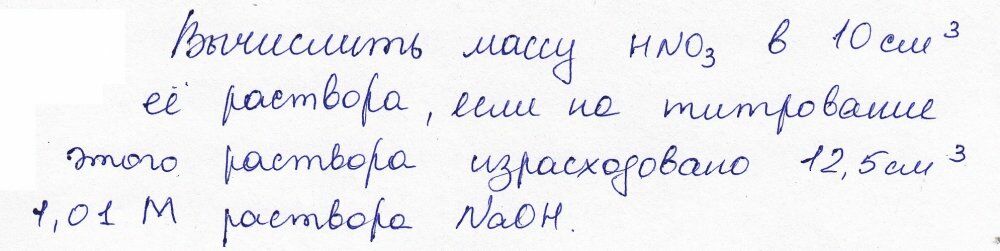 Вычислить массу HNO₃ в 10 см³
её раствора, если на титрование
этого раствора израсходовано 12,5 см³
1,01 М раствора NaOH.